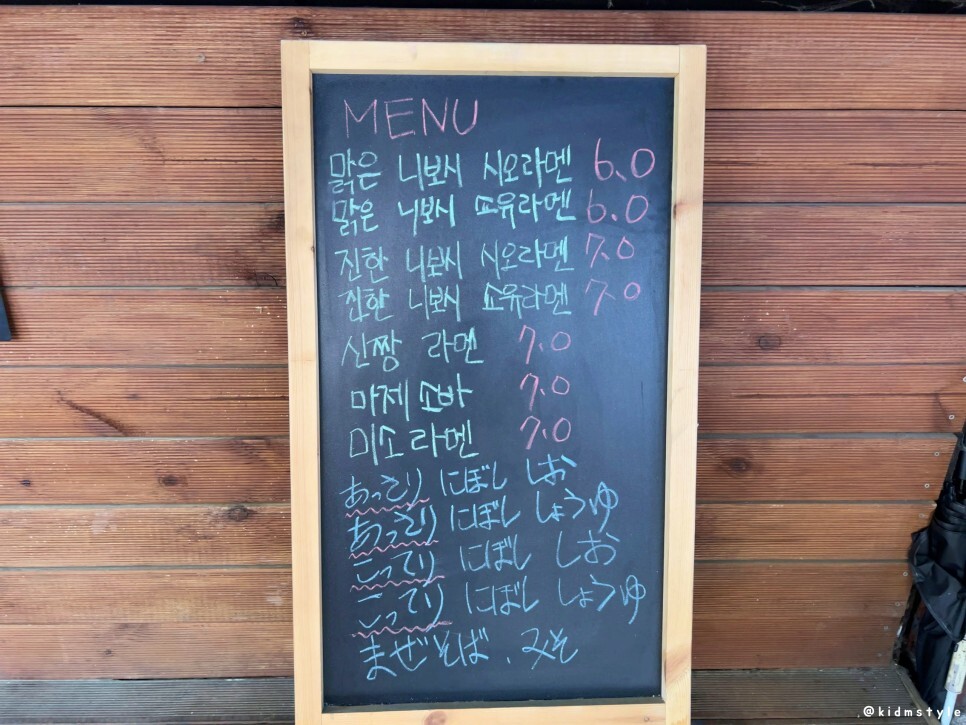 MENU
맑은 니보시 시오라멘 6.0
맑은 니보시 쇼유라멘 6.0
진한 니보시 시오라멘 7.0
진한 니보시 쇼유라멘 7.0
신짱 라멘 7.0
마제소바 7.0
미소라멘 7.0
あっさり にぼし しお
あっさり にぼし しょうゆ
こってり にぼし しお
こってり にぼし しょうゆ
まぜそば、みそ
@kidmstyle